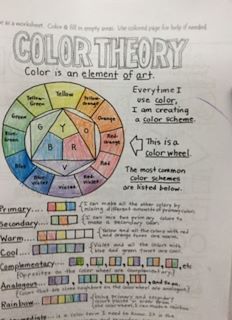 is a worksheet. Color & fill in empty areas. Use colored page for help if needed
COLOR THEORY
Color is an element of art.
Yellow
Yellow-Orange
Orange
Red-Orange
Red
Red-Violet
Violet
Blue-Violet
Blue
Blue-Green
Green
Yellow-Green
Y
O
R
V
B
G
Everytime I
use color,
I am creating
a color scheme.
This is a
color wheel.
The most common
color schemes
are listed below.
Primary.... {I can make all the other colors by
mixing different amounts of primary colors.
Secondary.... {I can mix two primary colors to
make a Secondary color.
Warm.... {Yellow and all the colors with red
and orange tones are warm.
Cool.... {Violet and all the colors with
blue and green tones are cool.
Complementary.... , etc
(Opposites on the color wheel are Complementary.)
Analogous.... , and so on.
(Colors that are close neighbors on the color wheel are analogous.)
Rainbow.... {Using Primary and secondary
Intermediate.... is a color term I need to know. It is the